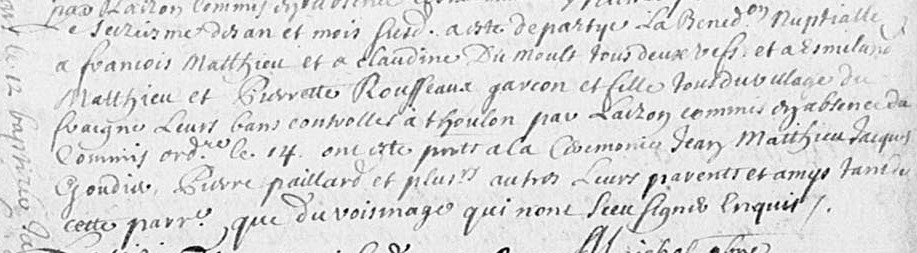 par Laizon commis en absence
e seizieme desan et mois susd. a esté departye La Bened.on Nuptialle
a francois Matthieu et a Claudine Du Moult tous deux vefs. et a Esmiland
Matthieu et Pierrette Rousseaux garcon et fille tous du village du
fraigne Leurs bans controlles a thoulon par Laizon commis en absence du
Commis ord.re le 14. ont esté pnts a la Ceremonie Jean Matthieu Jacques
Goudier, Pierre paillard et plus.rs autres Leurs parents et amys tant de
cette parr.e, que du voisinage qui nont sceu signer Enquis /.
le 12 baptize